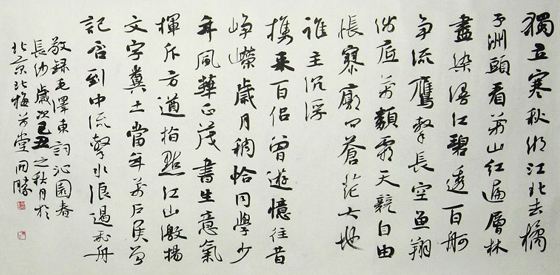 獨立寒秋湘江北去橘
子洲頭看萬山紅遍層林
盡染漫江碧透百舸
争流鷹擊長空魚翔
淺底萬類霜天競自由
悵寥廓問蒼茫大地
誰主沉浮
携來百侣曾遊憶往昔
崢嶸歲月稠恰同學少
年風華正茂書生意氣
揮斥方遒指點江山激揚
文字糞土當年萬户侯曾
記否到中流擊水浪遏飛舟
敬録毛澤東詞沁園春
長沙歲次己丑之秋月於
北京北梅芳堂